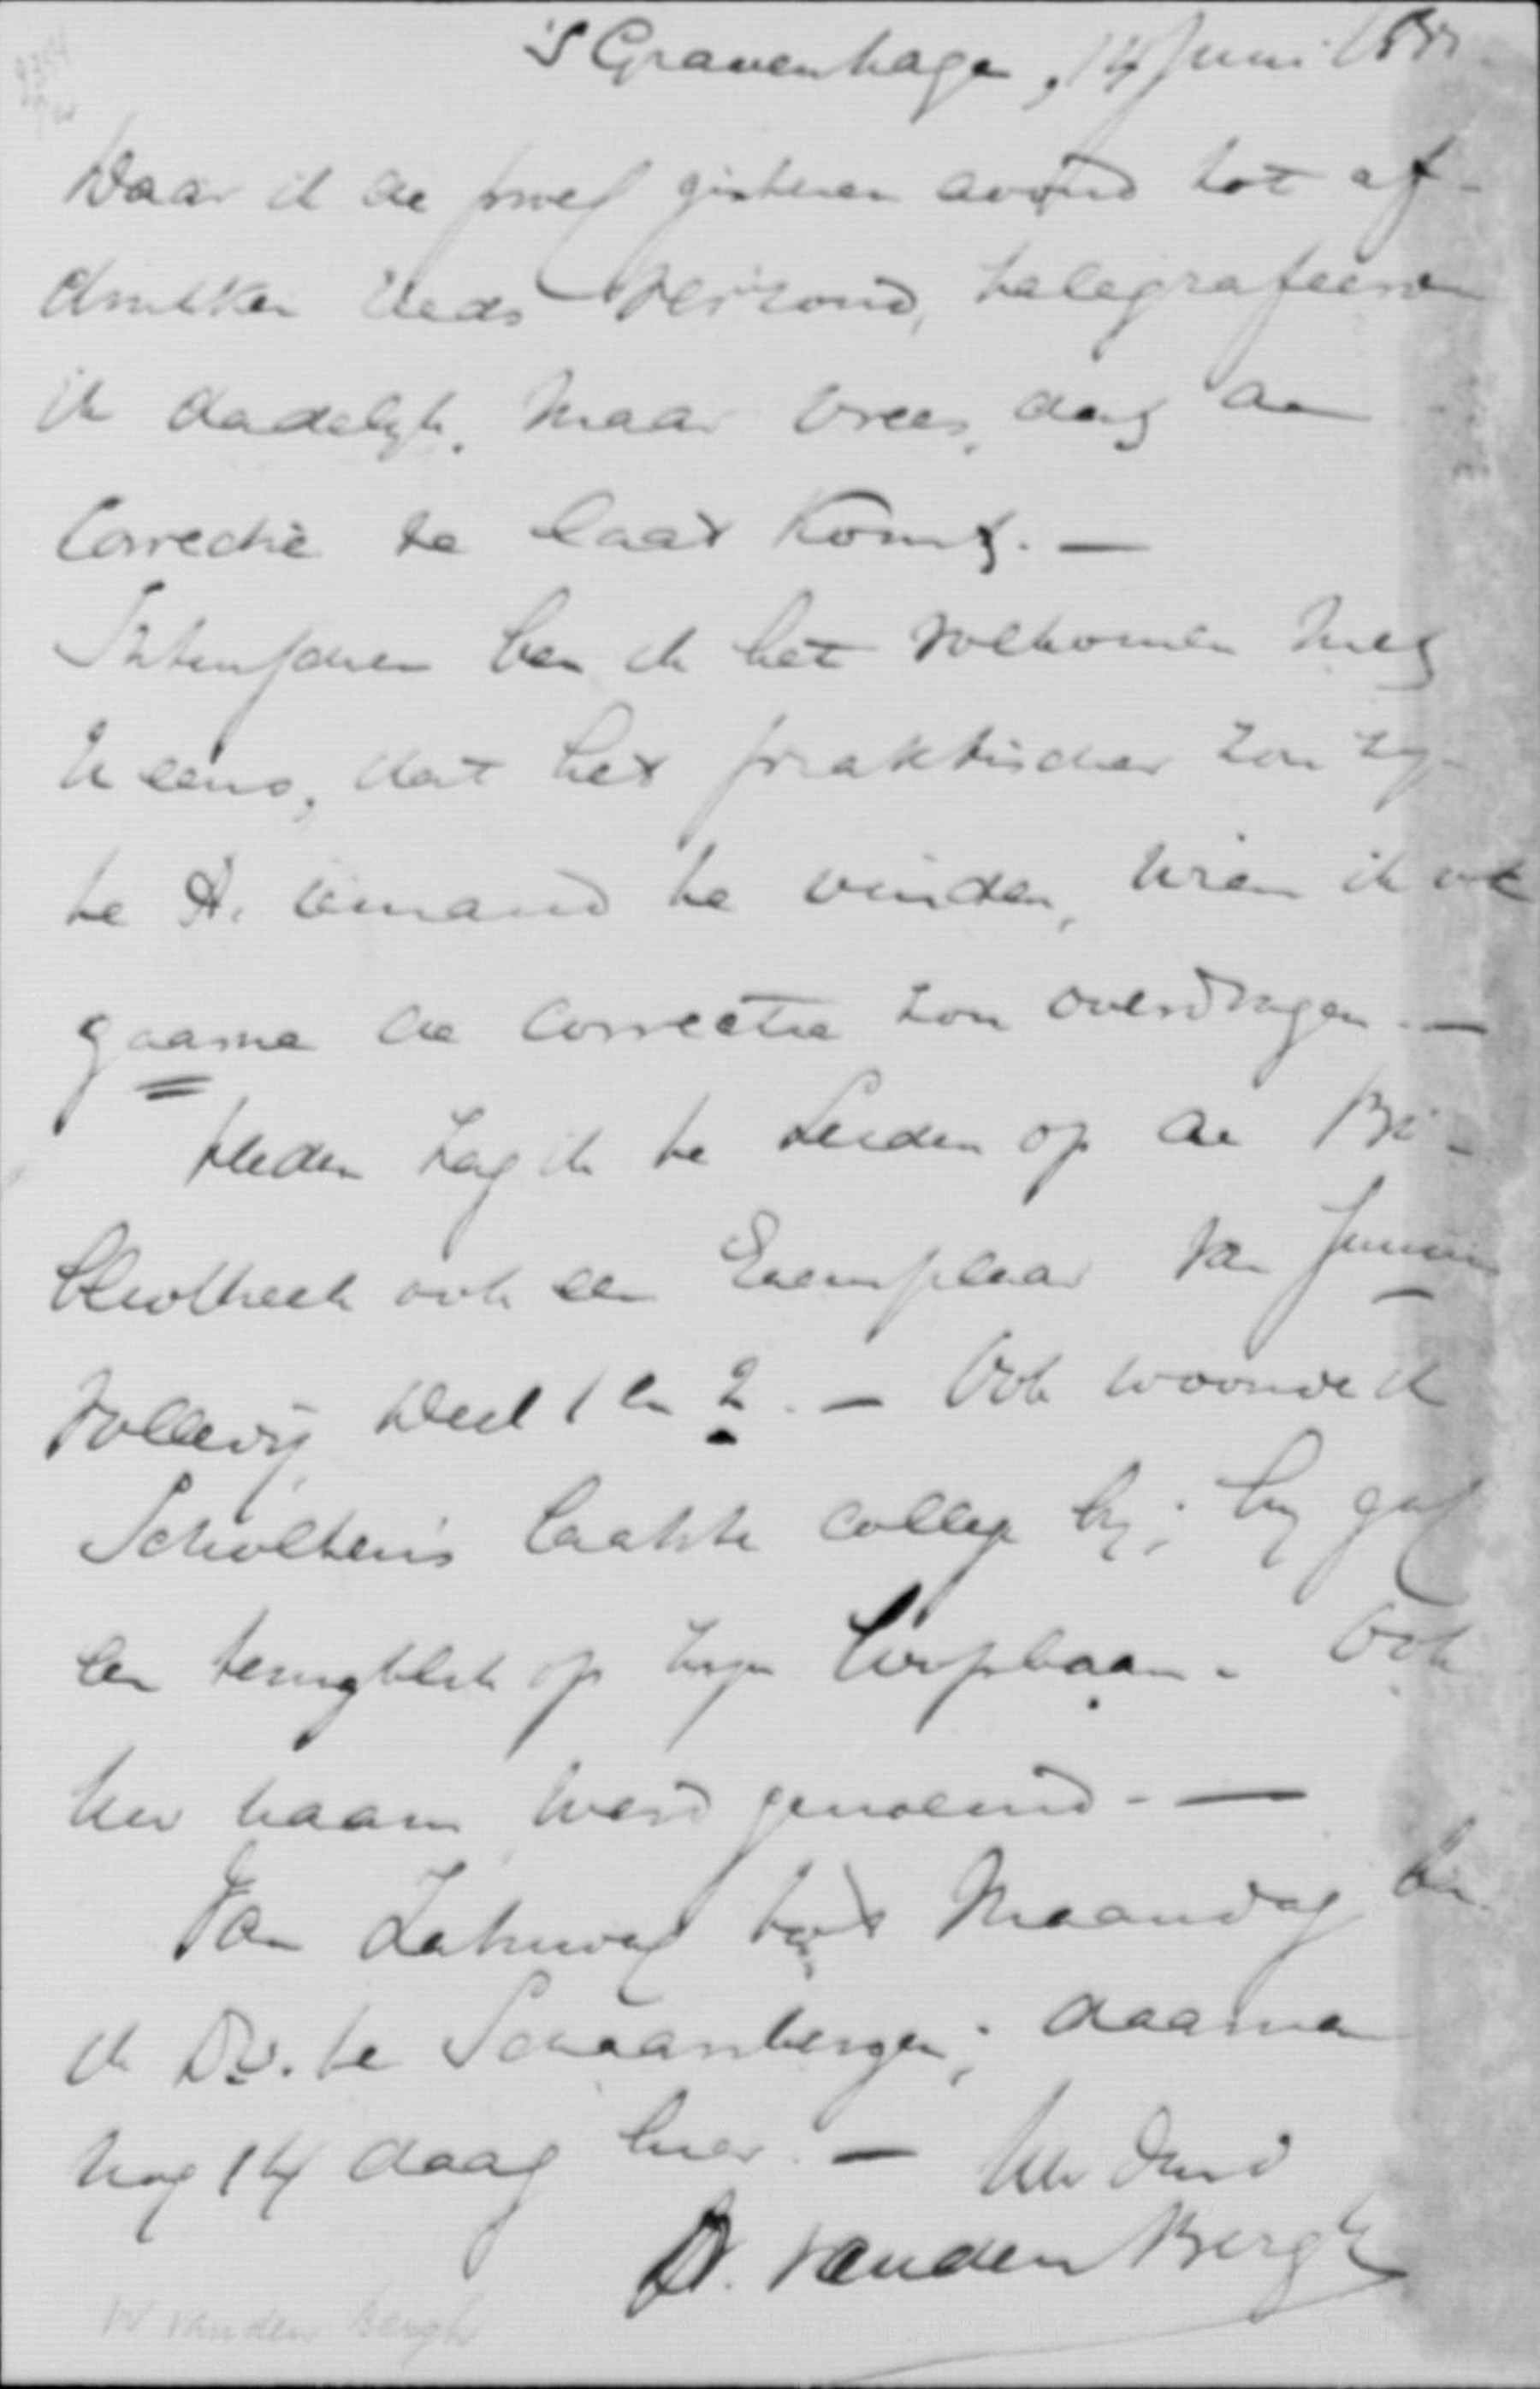 'S Gravenhage, 14 Juni
Daar ik de proef gisteren avond tot af-
drukken reeds verzond, telegrafeerde
ik dadelijk. Maar vrees, dat de
Correctie te laat komt. —
Intusschen ben ik het volkomen met
U eens, dat het praktischer zou zijn
te A. iemand te vinden, wien ik ook
gaarne de Correctie zou overdragen. —
Heden zag ik te Leiden op de Bi-
bliotheek ook een Exemplaar van Junius
volledig, Deel 1 en 2. — Ook woonde ik
Scholten's laatste college bij; hij gaf
een terugblik op zijn loopbaan. Ook
Uw naam werd genoemd. —
Van tot Maandag ben
ik D.V. te Schaarsbergen; daarna
nog 14 daag hier. — Uw
W. vanden Bergh
W vanden Bergh